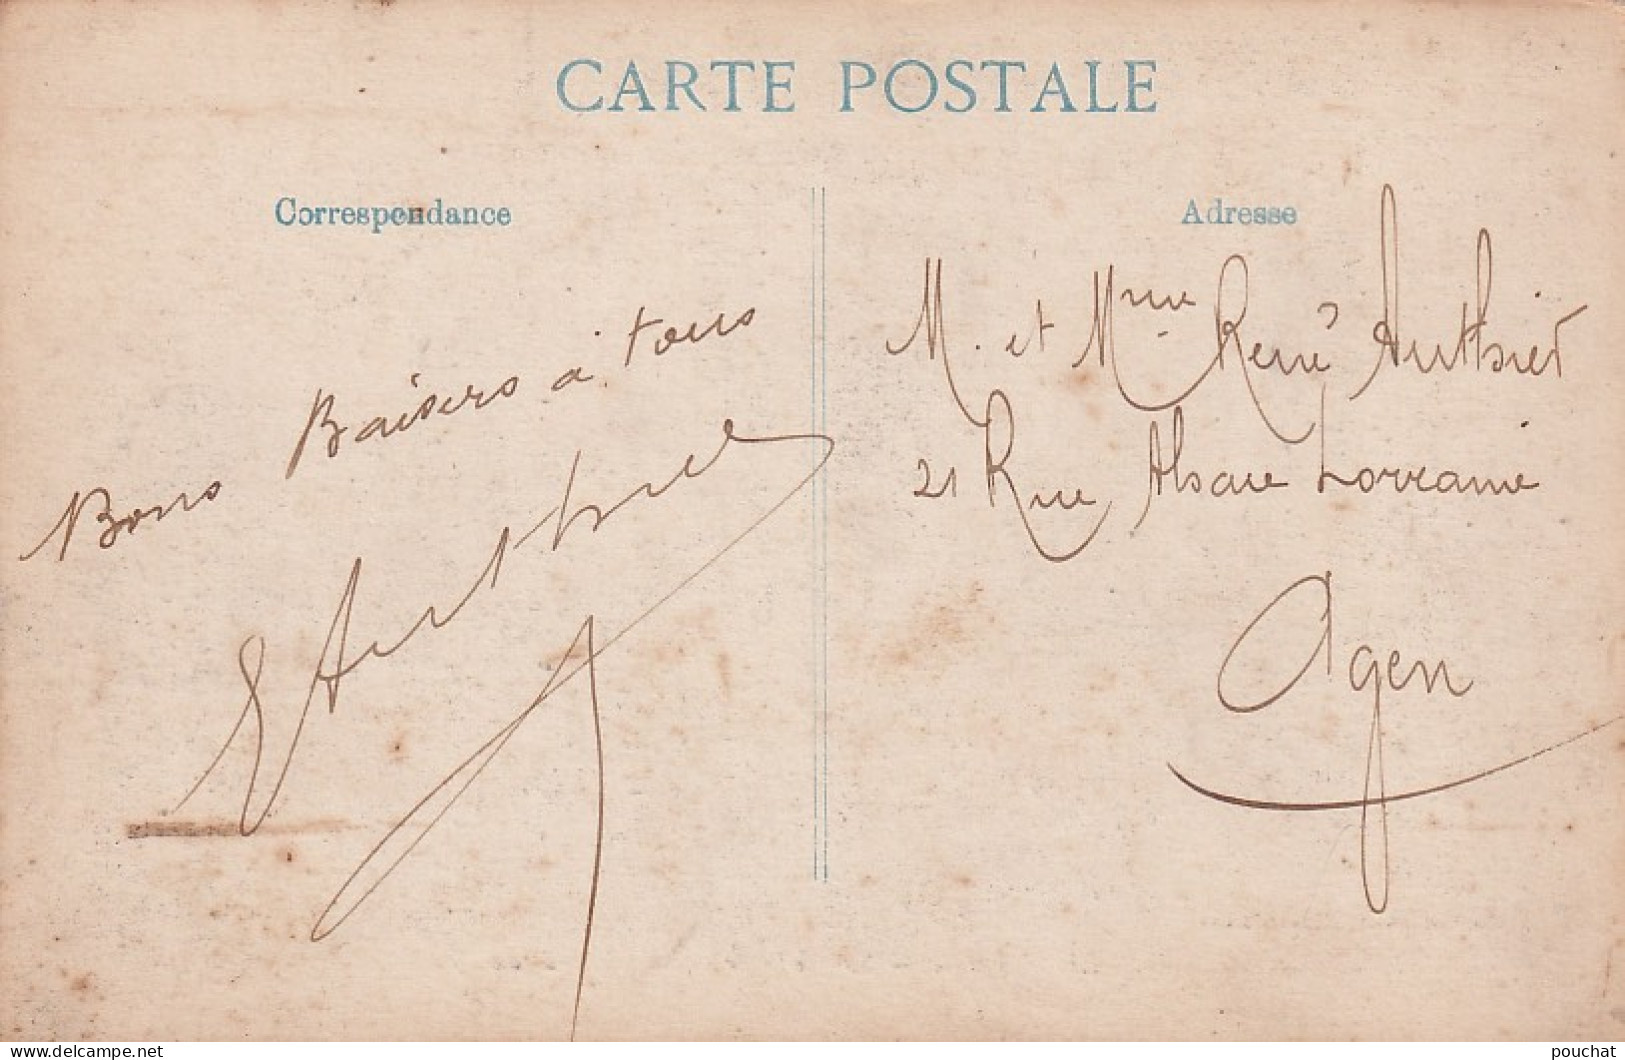 CARTE POSTALE
Correspondance
Bons Baisers à tous
Adresse
M. et Mme René Authier
21 Rue Alsace Lorraine
Agen
© delcampe.net
pouchat